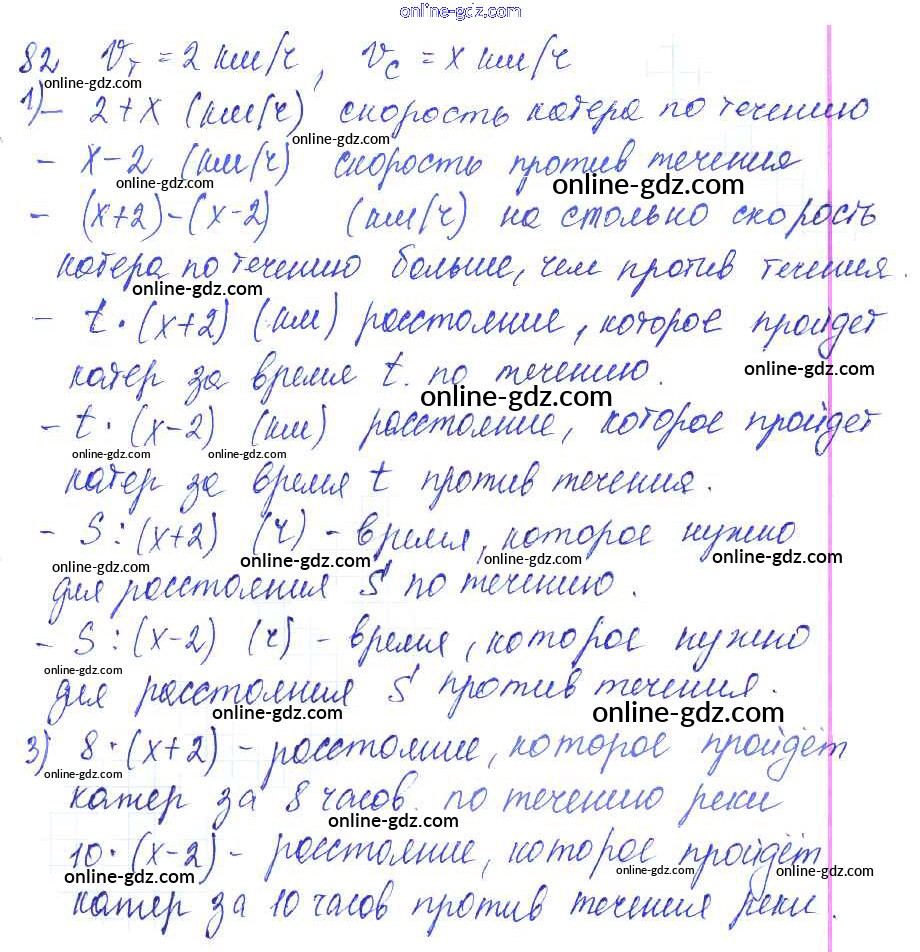 online-gdz.com
82 Vт = 2 км/ч, Vс = x км/ч
online-gdz.com
1) – 2 + x (км/ч) скорость катера по течению
online-gdz.com
– x – 2 (км/ч) скорость против течения
online-gdz.com online-gdz.com
– (x+2) – (x-2) (км/ч) на столько скорость
катера по течению больше, чем против течения.
online-gdz.com
– t · (x+2) (км) расстояние, которое пройдет
online-gdz.com
катер за время t. по течению.
online-gdz.com
– t · (x-2) (км) расстояние, которое пройдет
online-gdz.com online-gdz.com online-gdz.com
катер за время t против течения.
– S : (x+2) (ч) – время, которое нужно
online-gdz.com online-gdz.com online-gdz.com
для расстояния S по течению.
– S : (x-2) (ч) – время, которое нужно
online-gdz.com
для расстояния S против течения.
online-gdz.com online-gdz.com
3) 8 · (x+2) – расстояние, которое пройдёт
online-gdz.com
катер за 8 часов. по течению реки
online-gdz.com
10 · (x-2) – расстояние, которое пройдёт
online-gdz.com online-gdz.com online-gdz.com
катер за 10 часов против течения реки.